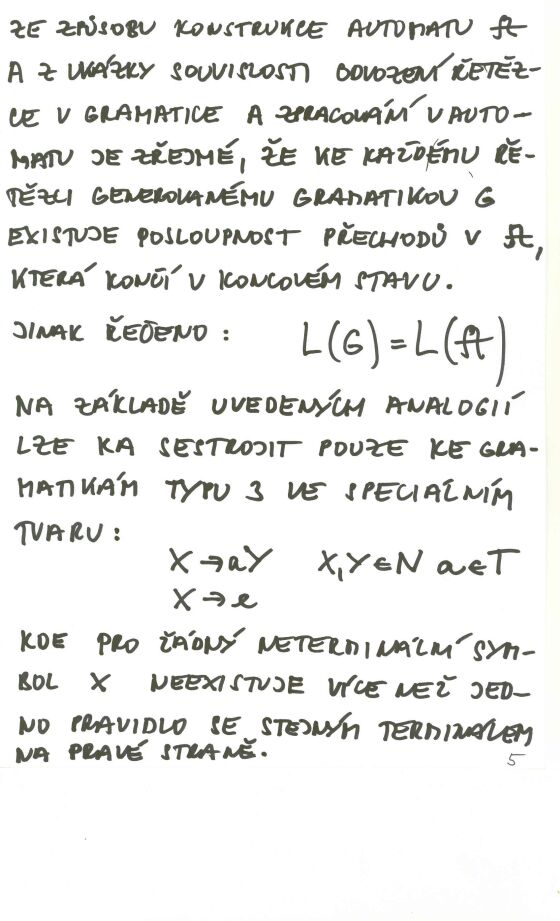 ZE ZPŮSOBU KONSTRUKCE AUTOMATU 𝒜
A Z UKÁZKY SOUVISLOSTI ODVOZENÍ ŘETĚZ-
CE V GRAMATICE A ZPRACOVÁNÍ V AUTO-
MATU JE ZŘEJMÉ, ŽE KE KAŽDÉMU ŘE-
TĚZCI GENEROVANÉMU GRAMATIKOU G
EXISTUJE POSLOUPNOST PŘECHODŮ V 𝒜,
KTERÁ KONČÍ V KONCOVÉM STAVU.
JINAK ŘEČENO: L(G)=L(𝒜)
NA ZÁKLADĚ UVEDENÝCH ANALOGIÍ
LZE KA SESTROJIT POUZE KE GRA-
MATIKÁM TYPU 3 VE SPECIÁLNÍM
TVARU:
X → aY X,Y ∈ N a ∈ T
X → e
KDE PRO ŽÁDNÝ NETERMINÁLNÍ SYM-
BOL X NEEXISTUJE VÍCE NEŽ JED-
NO PRAVIDLO SE STEJNÝM TERMINÁLEM
NA PRAVÉ STRANĚ.
5